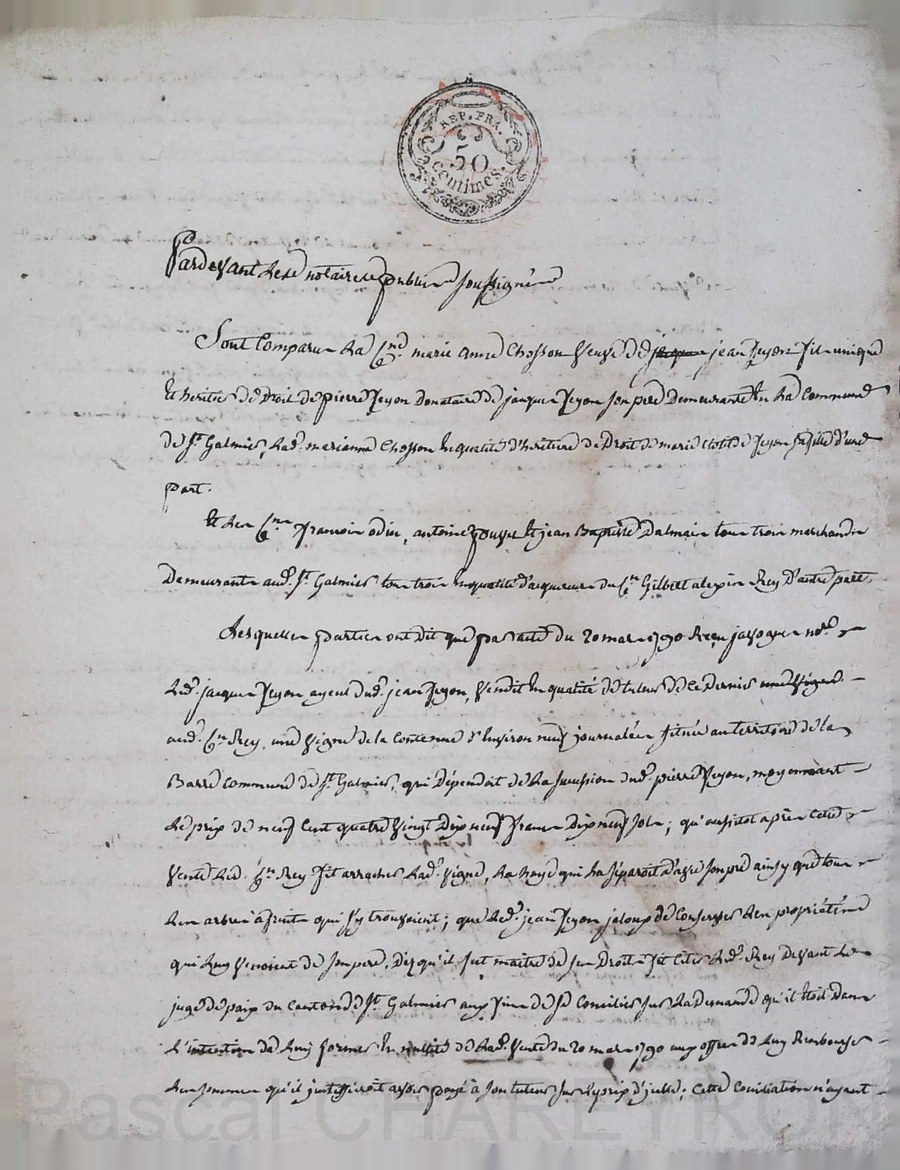 REP. FRA.
50
centimes.
Pardevant Les notaires publics soussignés
Sont Comparus La Cne. marie anne Chosson Veuve de jean Peyon fils unique
et heritier de Droit de pierre Peyon Donataire de jacques Peyon son pere Demeurante en La Commune
de St Galmier, Lad. marianne Chosson en qualité d'heritiere de Droit de marie Clotilde Peyon sa fille d'une
part.
Et Les Cns. francois odin, antoine et jean Baptiste Dalmais tous trois marchands
Demeurants aud. St Galmier tous trois en qualité d'acquereurs du Cn. Gilbert alexis Rey D'autre part,
Lesquelles parties ont dit que par acte du 20 mars 1790 Reçu not.
Led. jacques Peyon ayeul dud. jean Peyon, Vendit en qualité de tuteur de ce Dernier
aud. Cn. Rey, une Vigne de la Contenue d'Environ neuf journalées située au territoire de la
Barre Commune de St. Galmier, qui Dépendoit de La succession dud. pierre Peyon, moyennant
Le prix de neuf Cent quatre Vingt Dix neuf francs Dix neuf sols; qu'aussitot après cette
Vente Led. Cn. Rey fit arracher Lad. Vigne, La haye qui La séparoit d'avec son pré ainsy que tous
Les arbres à fruits qui s'y trouvoient; que Led. jean Peyon jaloux de Conserver Les propriétés
qui Luy Venoient de son pere, Dez qu'il fut maitre de ses Droits fit Citer Led. Rey Devant Le
juge de paix du Canton de St. Galmier aux fins de se Concilier sur La Demande qu'il étoit Dans
L'intention de Luy former en nullité de Lad. Vente du 20 mars 1790 aux offres de Luy Rembourser
Les sommes qu'il justiffieroit avoir payé à son tuteur sur Le prix d'icelle; Cette Conciliation n'ayant
Pascal CHAREYRON